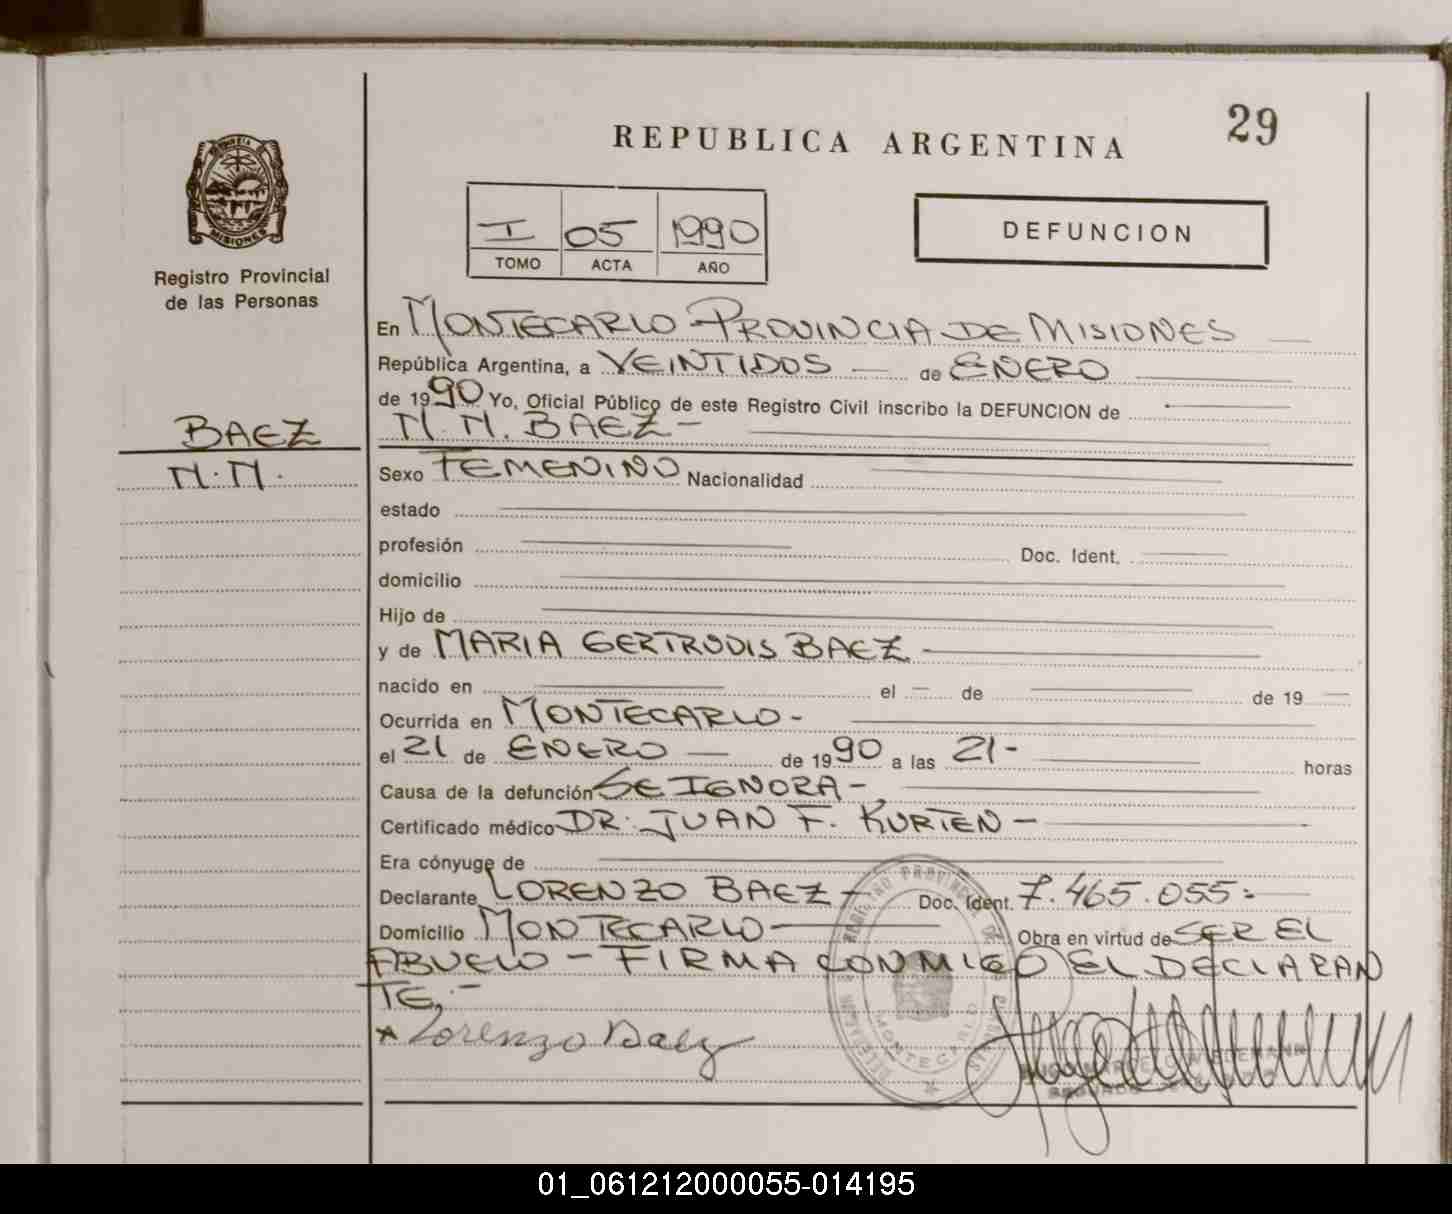 29
REPUBLICA ARGENTINA
I 05 1990
TOMO ACTA AÑO
DEFUNCION
MISIONES
Registro Provincial
de las Personas
BAEZ
N.N.
En MONTECARLO - PROVINCIA DE MISIONES
República Argentina, a VEINTIDOS de ENERO
de 1990 Yo, Oficial Público de este Registro Civil inscribo la DEFUNCION de
N.N. BAEZ-
Sexo FEMENINO Nacionalidad
estado
profesión Doc. Ident.
domicilio
Hijo de
y de MARIA GERTRUDIS BAEZ
nacido en el de de 19
Ocurrida en MONTECARLO-
el 21 de ENERO de 1990 a las 21- horas
Causa de la defunción SE IGNORA-
Certificado médico DR. JUAN F. KURTEN-
Era cónyuge de
Declarante LORENZO BAEZ- Doc. Ident. 7.465.055:
Domicilio MONTECARLO- Obra en virtud de SER EL
ABUELO - FIRMA CONMIGO EL DECLARAN
TE.-
Lorenzo Baez
MONTECARLO
01_061212000055-014195